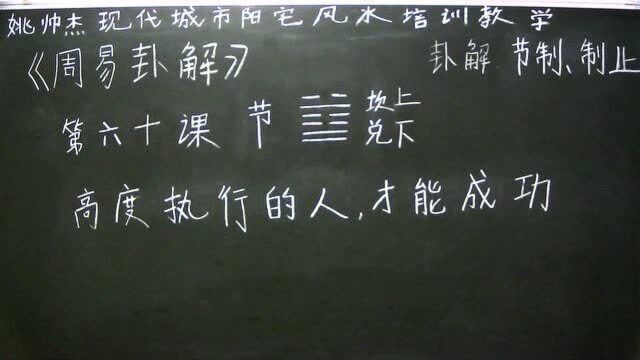 姚帅杰现代城市阳宅风水培训教学
《周易卦解》 卦解 节制、制止
第六十课 节 坎上
兑下
高度执行的人，才能成功